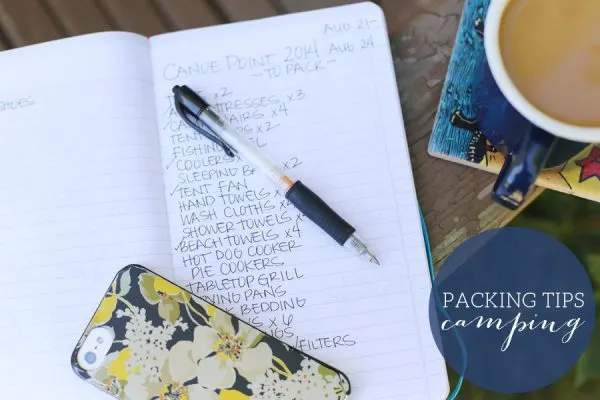 SHOES
AUG 21-
AUG 24
CANOE POINT 2014
-TO PACK-
x2
x3
x4
TENT x2
FISHING
COOLERS
SLEEPING x2
TENT FAN
HAND TOWELS
WASH CLOTHS
SHOWER TOWELS
BEACH TOWELS x4
HOT DOG COOKER
PIE COOKERS
TABLETOP GRILL
PANS
BEDDING
x6
/FILTERS
PACKING TIPS
camping